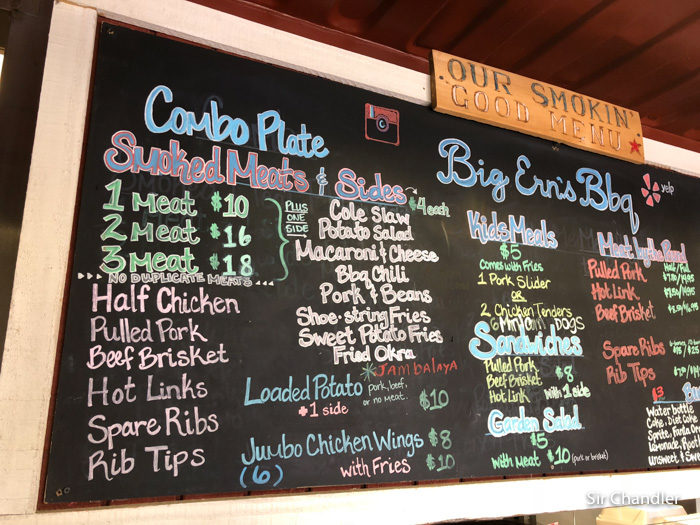 OUR SMOKIN'
GOOD MENU
Combo Plate
Smoked Meats & Sides
1 Meat $10
2 Meat $16
3 Meat $18
PLUS
ONE
SIDE
NO DUPLICATE MEATS
Half Chicken
Pulled Pork
Beef Brisket
Hot Links
Spare Ribs
Rib Tips
$4 each
Cole Slaw
Potato Salad
Macaroni & Cheese
Bbq Chili
Pork & Beans
Shoe-string Fries
Sweet Potato Fries
Fried Okra
JAMBALAYA
Loaded Potato
pork, beef,
or no meat.
+1 side
$10
Jumbo Chicken Wings $8
(6) with Fries $10
Big Ern's Bbq
yelp
Kids Meals
$5
comes with Fries
1 Pork Slider
or
2 Chicken Tenders
6 Mini Corn Dogs
Sandwiches
Pulled Pork
Beef Brisket
Hot Link
$8
with 1 side
Garden Salad
$5
with Meat $10 (pork or brisket)
Meat by the Pound
Pulled Pork
Hot Link
Beef Brisket
Half/Full
Spare Ribs
Rib Tips
$3
Water bottle
Coke, Diet Coke
Sprite, Fanta
Lemonade, Root
Unsweet & Sweet
SirChandler